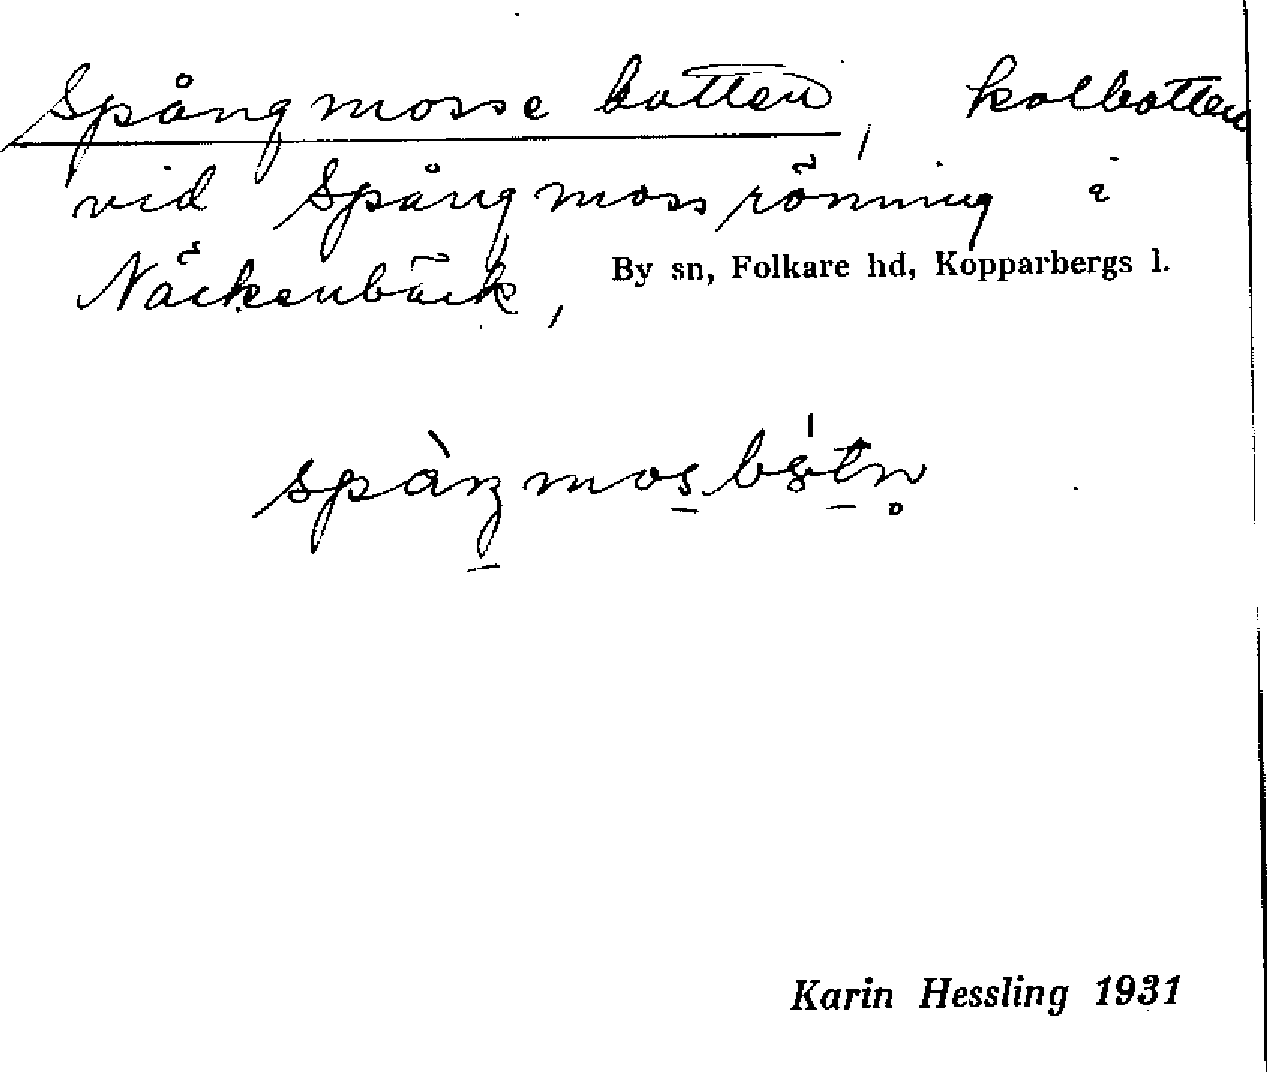 Spångmossebotten, kolbotten
vid Spångmossröning i
Näckenbäck, By sn, Folkare hd, Kopparbergs l.
Karin Hessling 1931